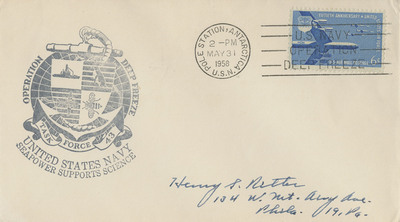 OPERATION DEEP FREEZE
TASK FORCE 43
UNITED STATES NAVY
SEAPOWER SUPPORTS SCIENCE
POLE STATION-ANTARCTICA
2-PM
MAY 31
1958
U.S.N.
FIFTIETH ANNIVERSARY UNITED
6¢
U.S. NAVY
OPERATION
DEEP FREEZE
Henry S. Ritter
134 W. Mt. Airy Ave.
Phila. 19, Pa.